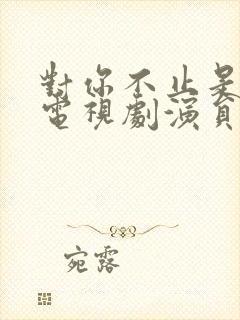 對你不止是
電視劇演員
宛露